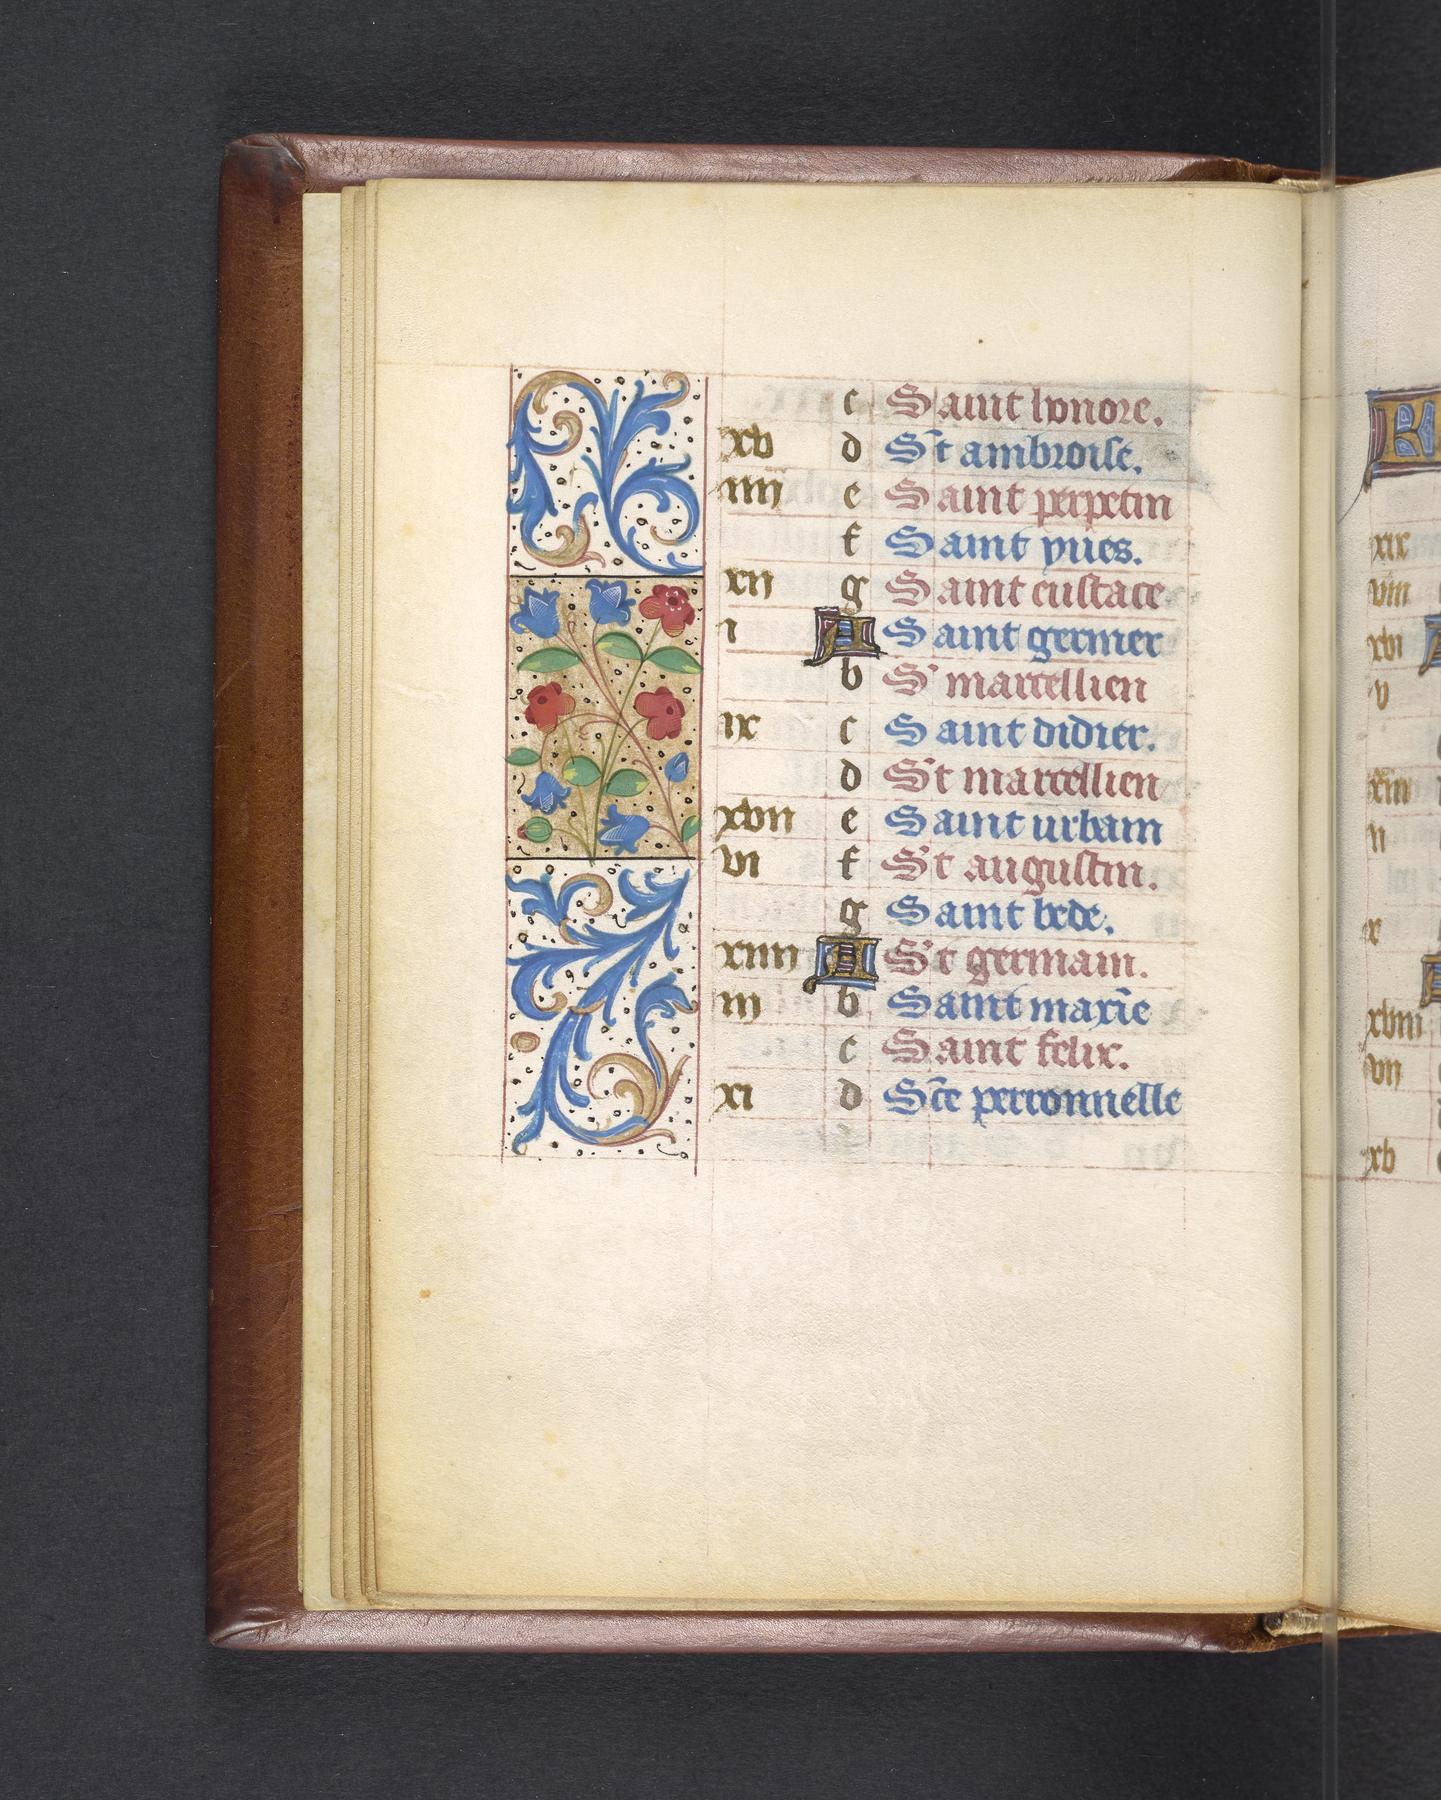 c Saint honore.
xv d St ambroise.
iiii e Saint perpetin
f Saint yues.
xii g Saint eustace
i A Saint germer
b St marcellien
ix c Saint didier.
d St marcellien
xvii e Saint urbain
vi f St augustin.
g Saint bede.
xiiii A St germain.
iii b Saint maxīe
c Saint felix.
xi d Sc̄e perronnelle
xix
viii
xvi
v
xiii
ii
x
xviii
vii
xv